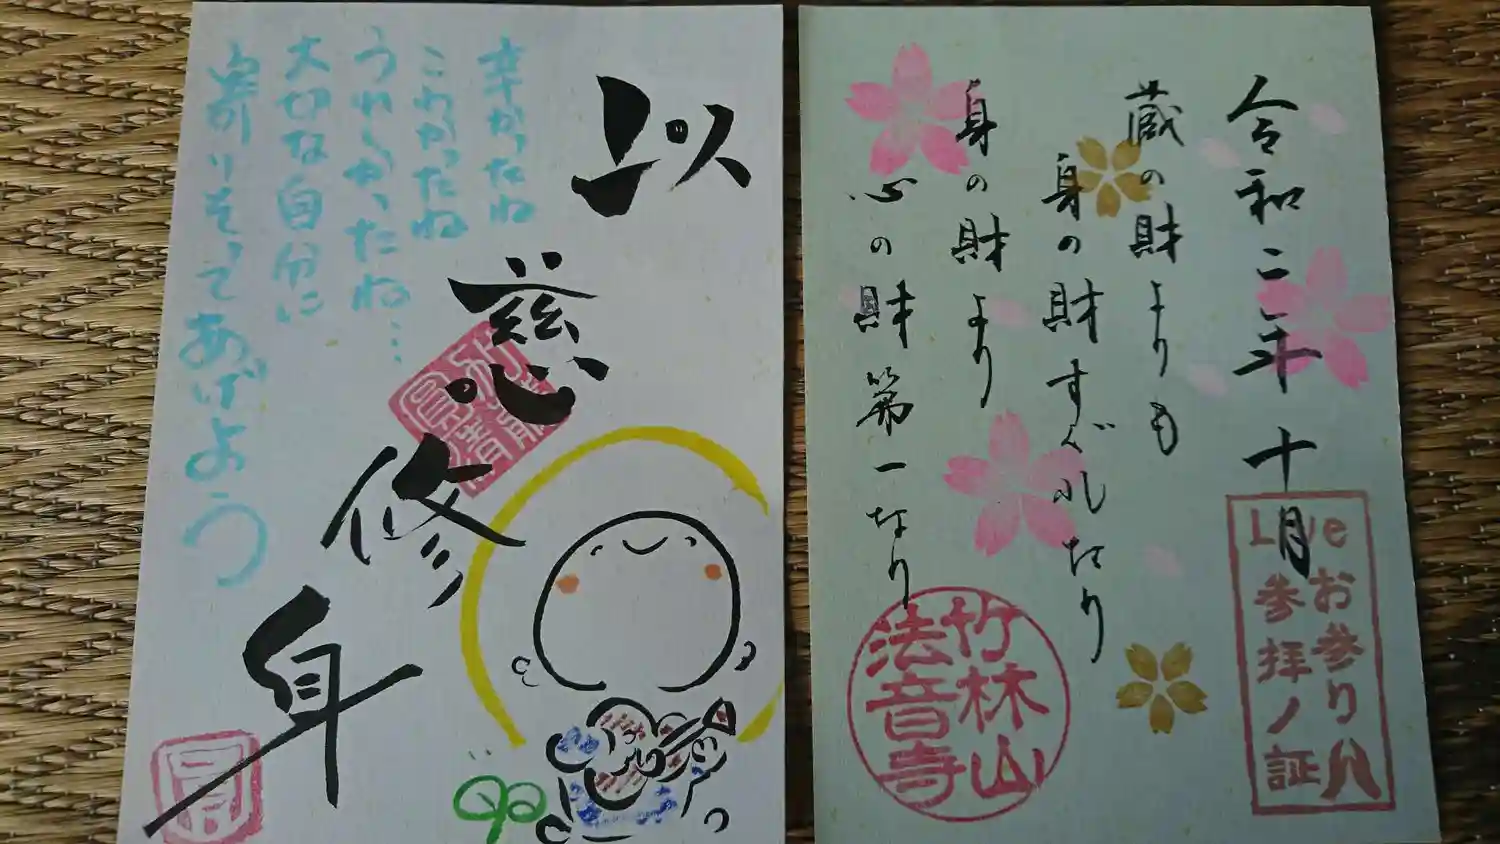 以慈修身
辛かったね
こわかったね
うれしかったね…
大切な自分に
寄りそって あげよう
令和二年十月
蔵の財よりも
身の財すぐれたり
身の財より
心の財第一なり
Liveお参り八
参拝ノ証
竹林山
法音寺